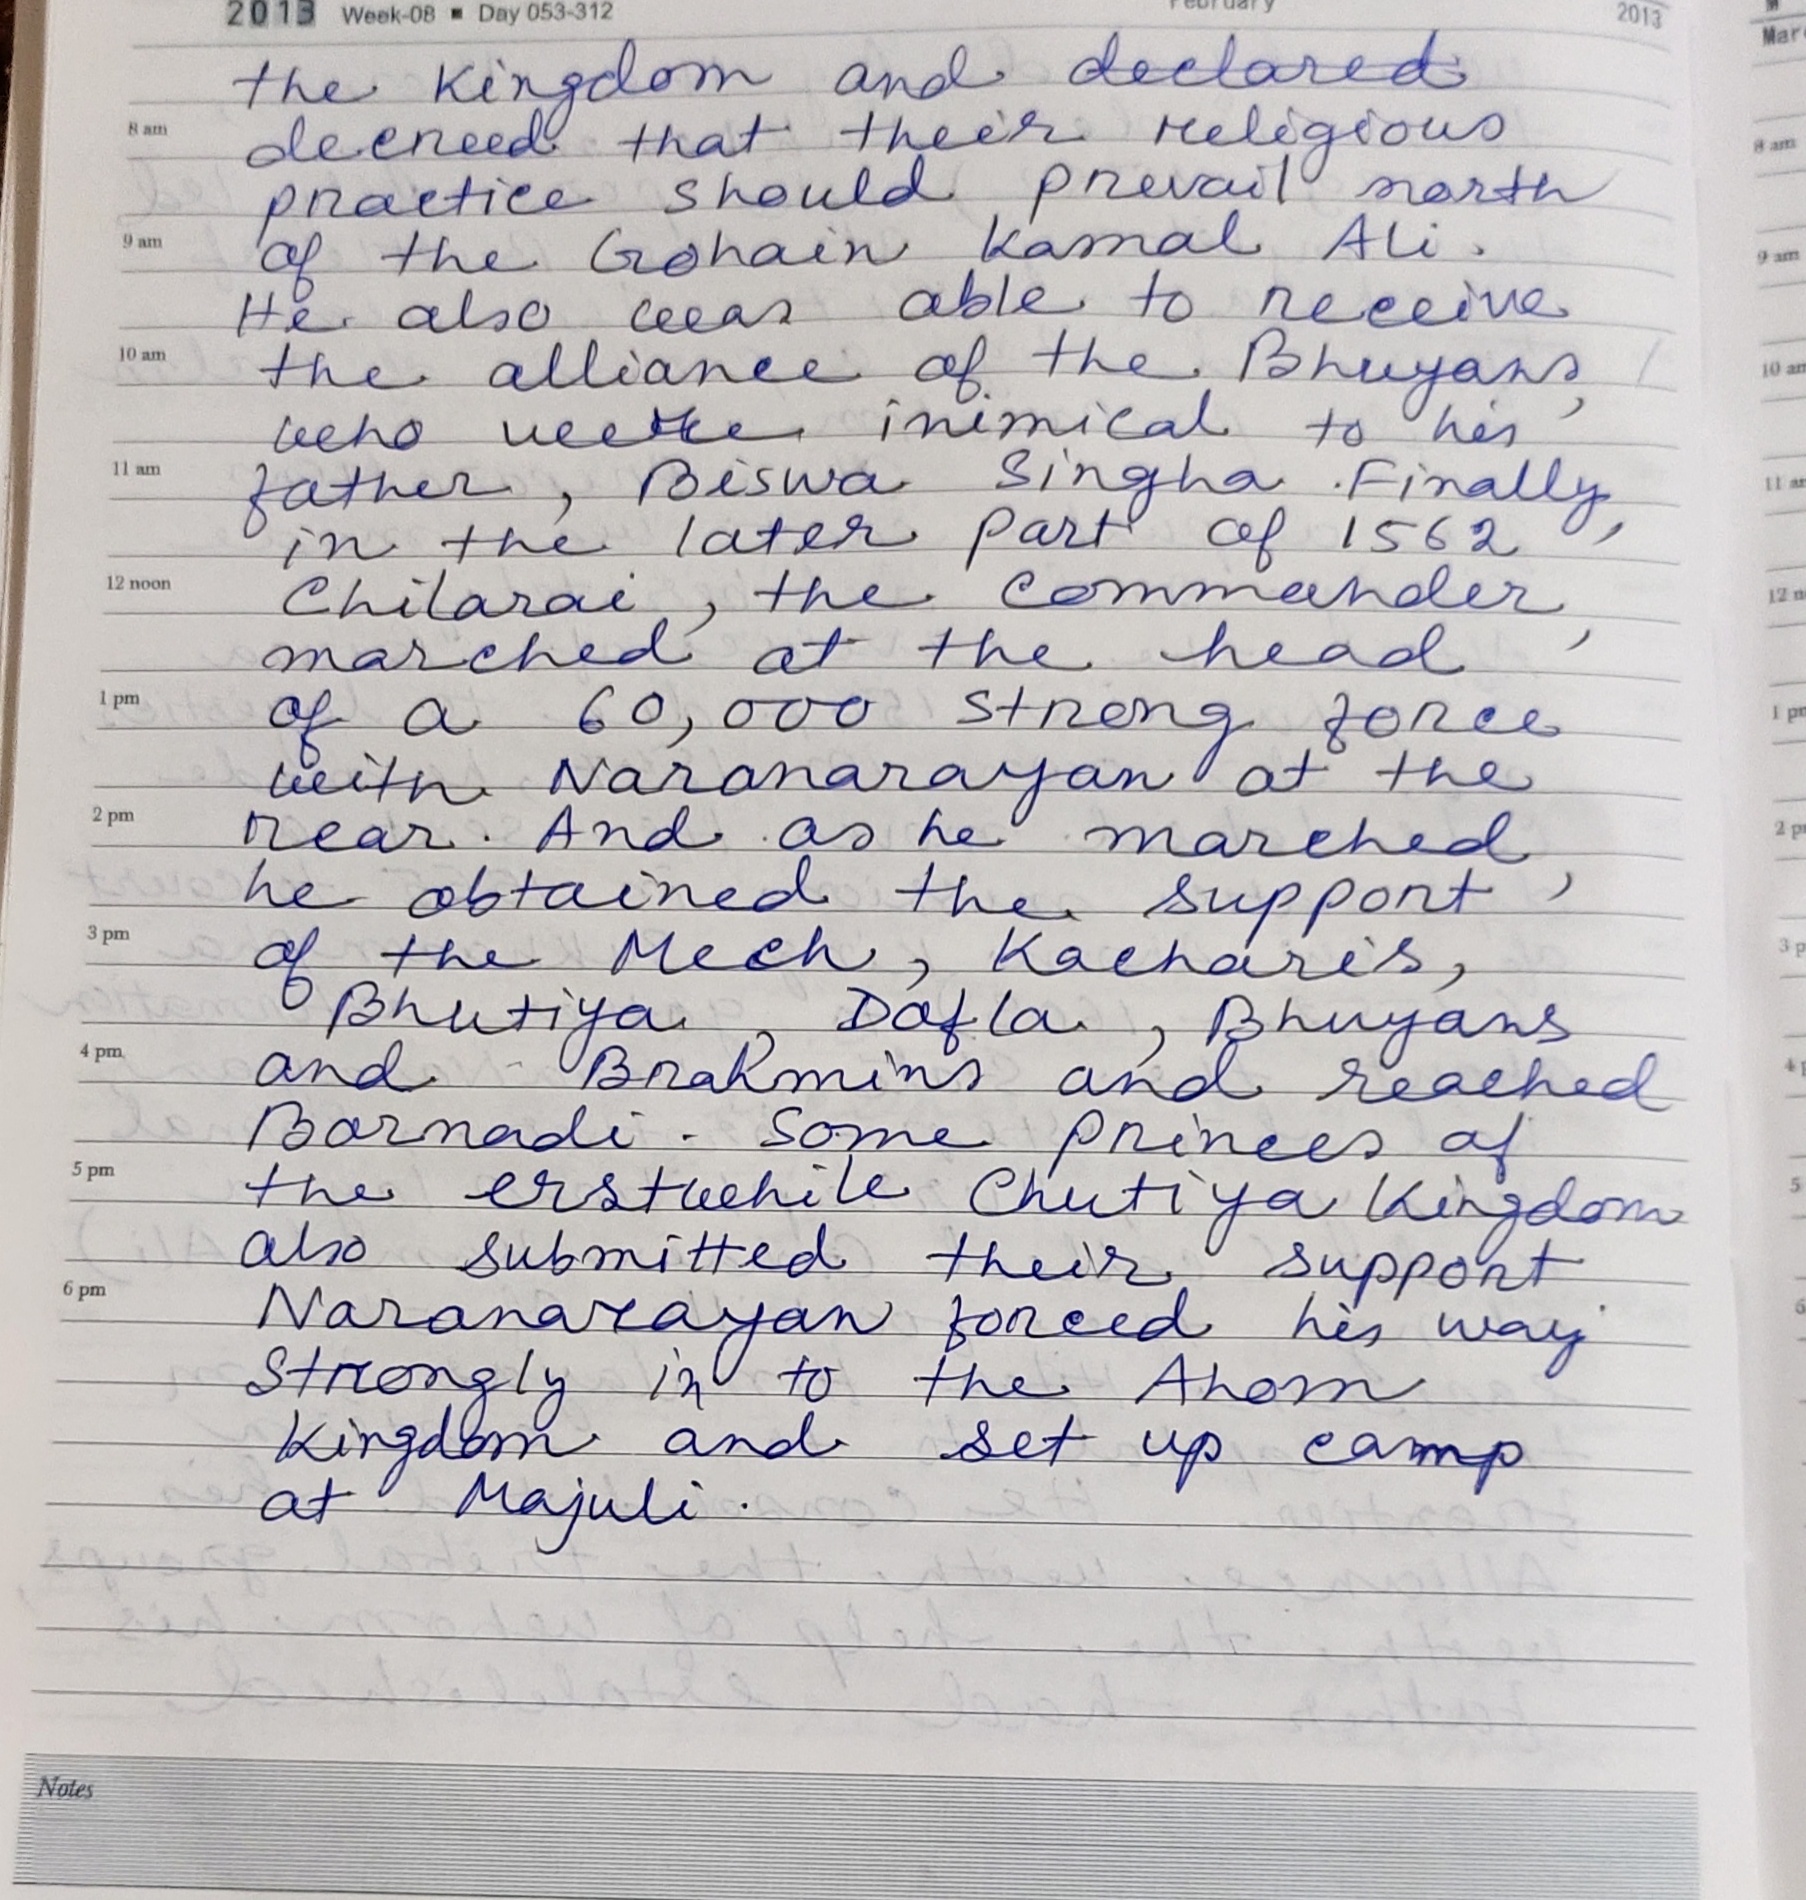 2013 Week-08 ■ Day 053-312 February 2013
the Kingdom and declared
8 am
decreed that their religious
practice should prevail north
9 am
of the Gohain Kamal Ali.
He also was able to receive
10 am
the alliance of the Bhuyans,
who were inimical to his
11 am
father, Biswa Singha. Finally,
in the later part of 1562
12 noon
Chilarai, the commander,
marched at the head
1 pm
of a 60,000 strong force
with Naranarayan at the
2 pm
rear. And as he marched,
he obtained the support
3 pm
of the Mech, Kacharis,
Bhutiya, Dafla, Bhuyans
4 pm
and Brahmins and reached
Barnadi. Some princes of
5 pm
the erstwhile Chutiya Kingdom
also submitted their support.
6 pm
Naranarayan forced his way
strongly in to the Ahom
Kingdom and set up camp
at Majuli.
Notes
8 am
9 am